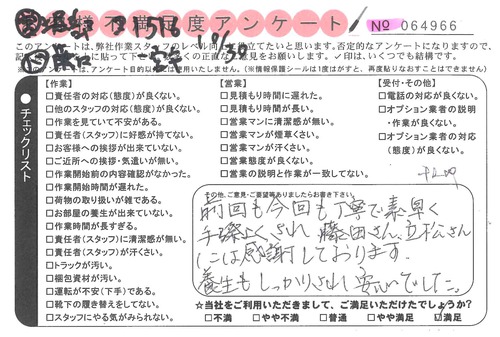 お客様不満足度アンケート
No 064966
このアンケートは、弊社作業スタッフのレベル向上に役立てたいと思います。否定的なアンケートになりますので、
に貼って下さ 直なご意見をお願いします。✓印は、いくつでも結構です。
アンケート目的以外には使用いたしません。(※情報保護シールは1度はがすと、再度貼りなおすことはできません)
チェックリスト
【作業】
□責任者の対応(態度)が良くない。
□他のスタッフの対応(態度)が良くない。
□作業を見ていて不安がある。
□責任者(スタッフ)に好感が持てない。
□お客様への挨拶が出来ていない。
□ご近所への挨拶・気遣いが無い。
□作業開始前の内容確認がなかった。
□作業開始時間が遅れた。
□荷物の取り扱いが雑である。
□お部屋の養生が出来ていない。
□作業時間が長すぎる。
□責任者(スタッフ)に清潔感が無い。
□責任者(スタッフ)が汗くさい。
□トラックが汚い。
□梱包資材が汚い。
□運転が不安(下手)である。
□靴下の履き替えをしてない。
□スタッフにやる気がみられない。
【営業】
□見積もり時間に遅れた。
□見積もり時間が長い。
□営業マンに清潔感が無い。
□営業マンが煙草くさい。
□営業マンが汗くさい。
□営業態度が良くない。
□営業の説明と作業が一致してない。
【受付・その他】
□電話の対応が良くない。
□オプション業者の説明・作業が良くない。
□オプション業者の対応(態度)が良くない。
その他、ご意見・ご要望等ありましたらお書き下さい。
前回も今回も丁寧で素早く
手際よくされ 藤田さん、立松さん
には感謝しております。
養生もしっかりされ 安心でした。
☆当社をご利用いただきまして、ご満足いただけたでしょうか?
□不満 □やや不満 □普通 □やや満足 ☑満足